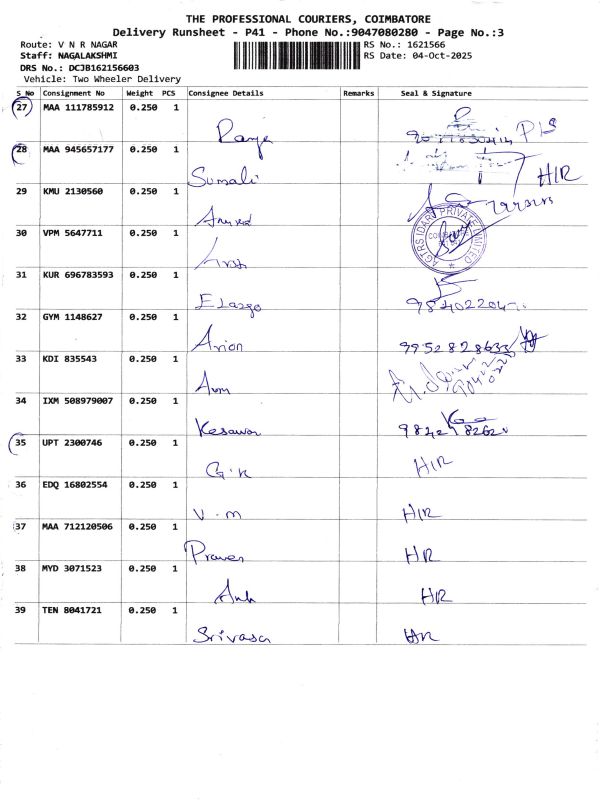 THE PROFESSIONAL COURIERS, COIMBATORE
Delivery Runsheet - P41 - Phone No.:9047080280 - Page No.:3
Route: V N R NAGAR RS No.: 1621566
Staff: NAGALAKSHMI RS Date: 04-Oct-2025
DRS No.: DCJB162156603
Vehicle: Two Wheeler Delivery
S_No Consignment No Weight PCS Consignee Details Remarks Seal & Signature
27 MAA 111785912 0.250 1
28 MAA 945657177 0.250 1
Sumali HIR
29 KMU 2130560 0.250 1
30 VPM 5647711 0.250 1
31 KUR 696783593 0.250 1
32 GYM 1148627 0.250 1
Arion 9952828633
33 KDI 835543 0.250 1
34 IXM 508979007 0.250 1
Kesavan
35 UPT 2300746 0.250 1
G.K HIR
36 EDQ 16802554 0.250 1
V.M HIR
37 MAA 712120506 0.250 1
Praven HR
38 MYD 3071523 0.250 1
HR
39 TEN 8041721 0.250 1
Srivasa HR